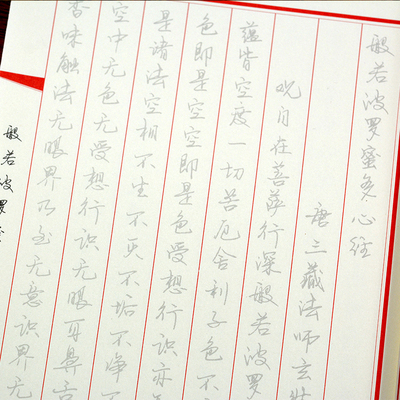 般若波罗蜜多心经
唐三藏法师玄奘
观自在菩萨行深般若波罗
蕴皆空度一切苦厄舍利子色不
色即是空空即是色受想行识亦
是诸法空相不生不灭不垢不净不
空中无色无受想行识无眼耳鼻舌
香味触法无眼界乃至无意识界无
般若波罗